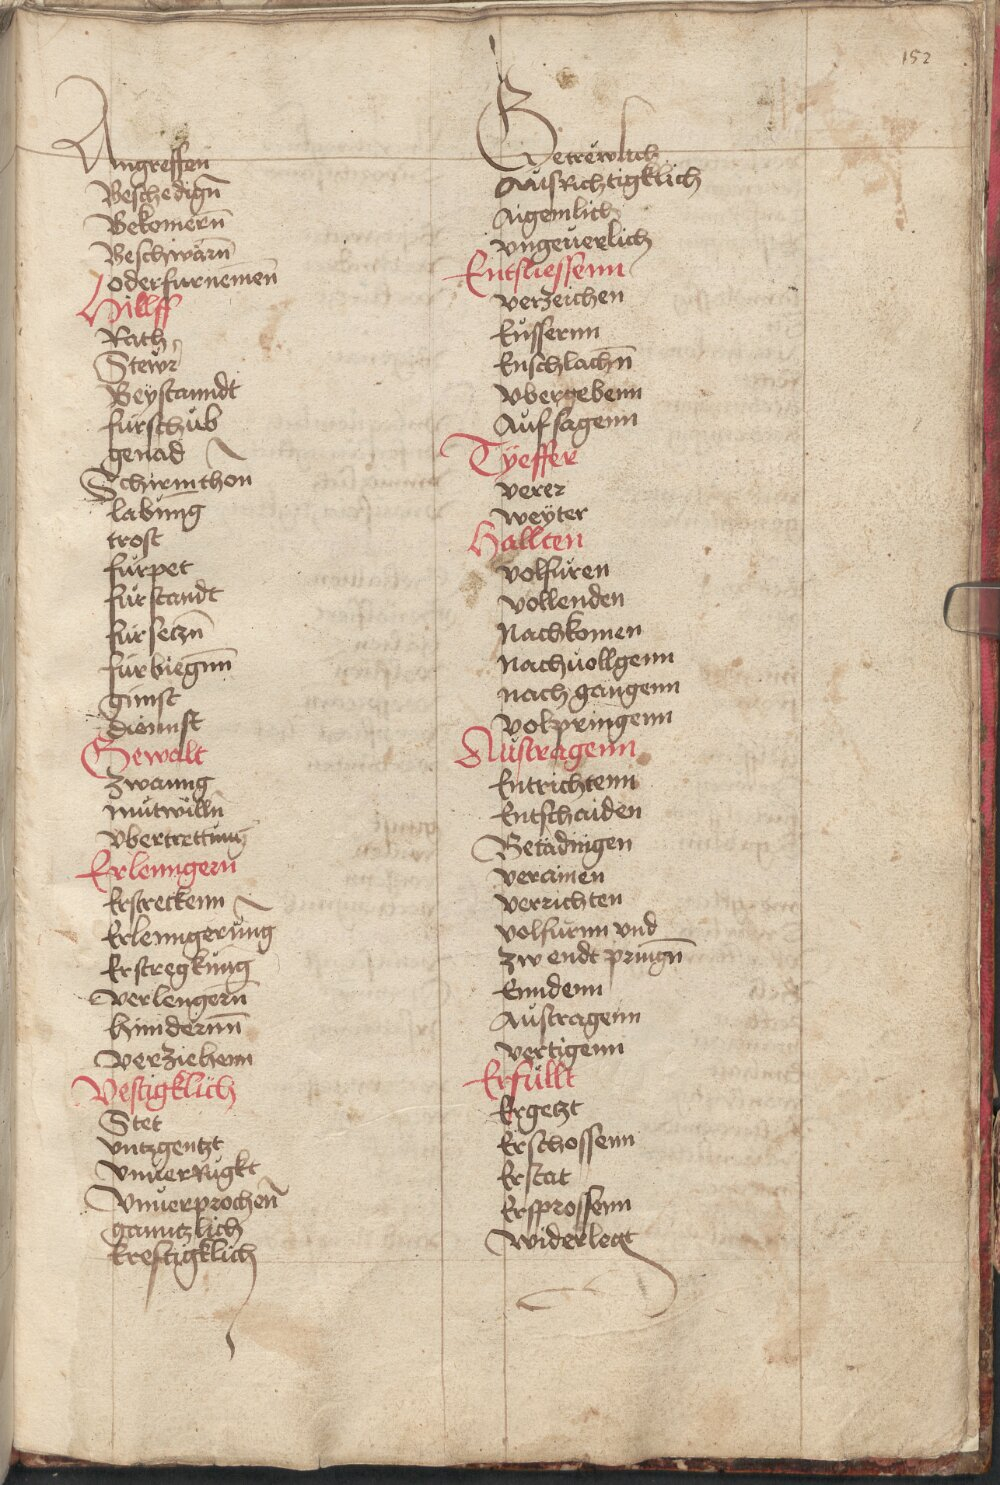 152
Angreffen
Beschedign̄
Bekomern̄
Beschwärn̄
oder furnemen̄
Hillff
Rath
Stewr
Beÿstanndt
fürschüb
genad
Schirmthon
labūng
trost
fürpet
fürstandt
fürsetzn̄
fürbiegnn̄
günst
diennst
Gewalt
Zwanng
mütwilln̄
vbertrettung
Erlenngern̄
Erstreckenn
Erlenngerüng
Erstregküng
verlengern̄
hindernn̄
verziehenn
Vestigklich
Stet
vntzgentzt
vnuerrügkt
Vnuerprochen̄
gänntzlich
krefftigklich
Getrewlich
Ausrichtigklich
Aigemlich
vngeuerlich
Entsliessenn
verzeichen
Eüssernn
Enschlachn̄
vbergebenn
Aüfsagenn
Tÿeffer
verer
weÿter
Hallten
volfüren
vollenden
Nachkomen
Nachuollgenn
nachgangenn
volpringenn
Austragenn
Entrichtenn
Entschaiden
Betädingen
verainen
verrichten
volfürnn vnd
zw endt pringn̄
Enndenn
Aüstragenn
vertigenn
Erfüllt
Ergetzt
Erschossenn
Erstat
Ersprossenn
widerlegt